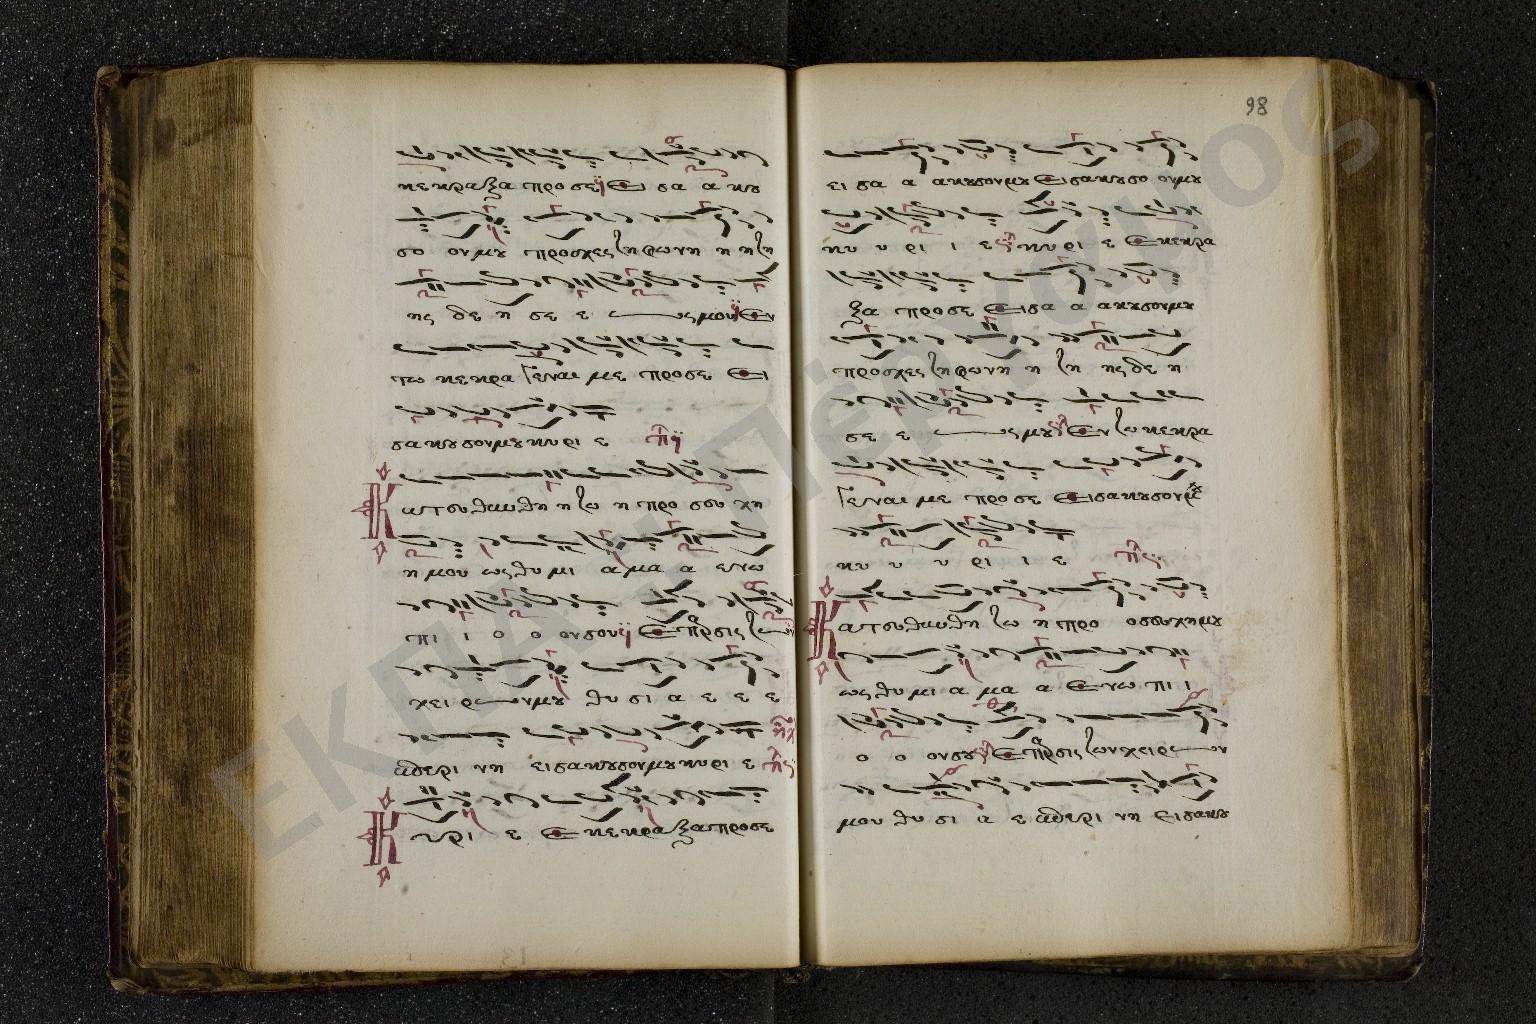 κε κρα ξα προ σε Ει σα α κου
σο ον μου προσχες τη φωνη η η τη
ης δε η σε ε ως μου Εν
τω κε κρα γεναι με προσε Ει
σα κου σον μου κυ ρι ε
Κατευθυνθη η τω η προ σευ χη
η μου ως θυ μι α μα α ενω
πι ι ο ο ον σου Επαρσις των
χει ρων μου θυ σι α ε ε ε
σπερι νη εισακουσον μου κυρι ε
Κυρι ε Ε κε κρα ξα προσε
98
ει σα α ακουσον μου Εισακουσο ον μου
κυ υ ρι ι ε κυρι ε Εκεκρα
ξα προσε Εισα α ακουσον μου
προσχες τη φωνη η τη ης δε η
σε ε ως μου Εν τω κε κρα
γεναι με προ σε Εισακουσον μου
κυ υ υ ρι ι ε
Κατευθυνθη τω η προ οσευχη μου
ως θυ μι α μα α Ενω πι ι
ο ο ον σου Επαρσις των χει ρων
μου θυ σι α ε σπερι νη Εισακου